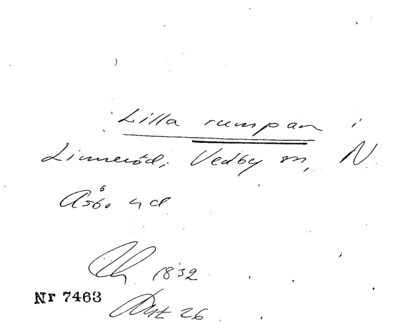 Lilla rumpan i
Linneröd, Vedby sn, N
Åsbo hd
1832
Nr 7463
Akt 26